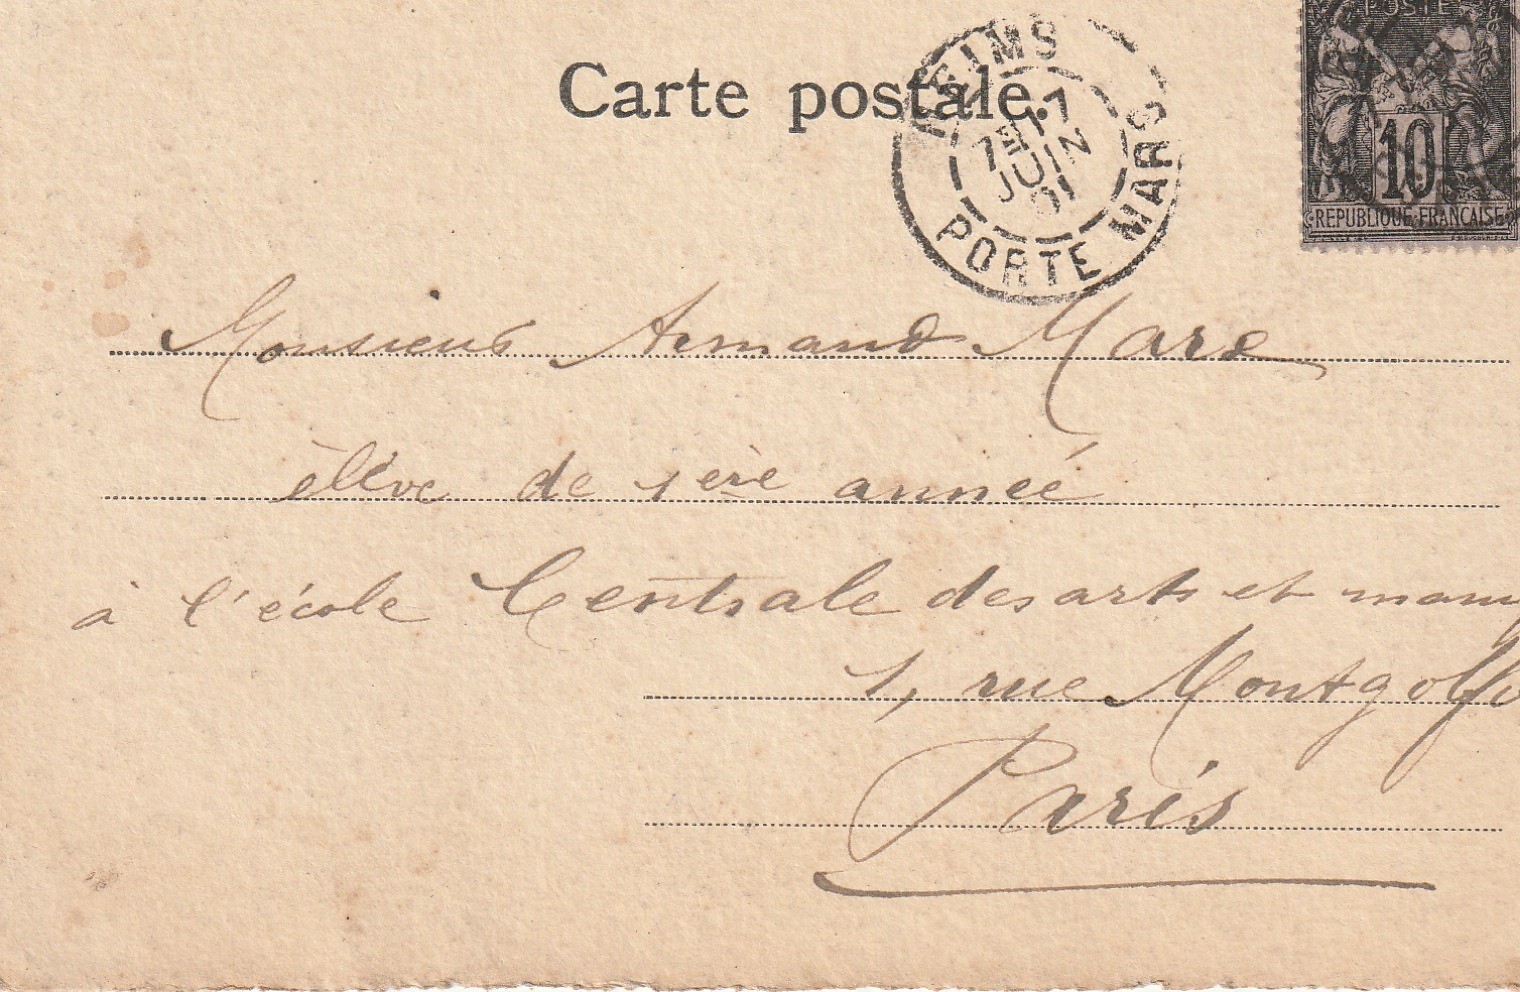 POSTE
Carte postale.
REIMS
7E 17
JUIN
01
PORTE MARS
10
REPUBLIQUE FRANCAISE
Monsieur Armand Marx
élève de 1ère année
à l'école Centrale des arts et manu
1, rue Montgolfi
Paris